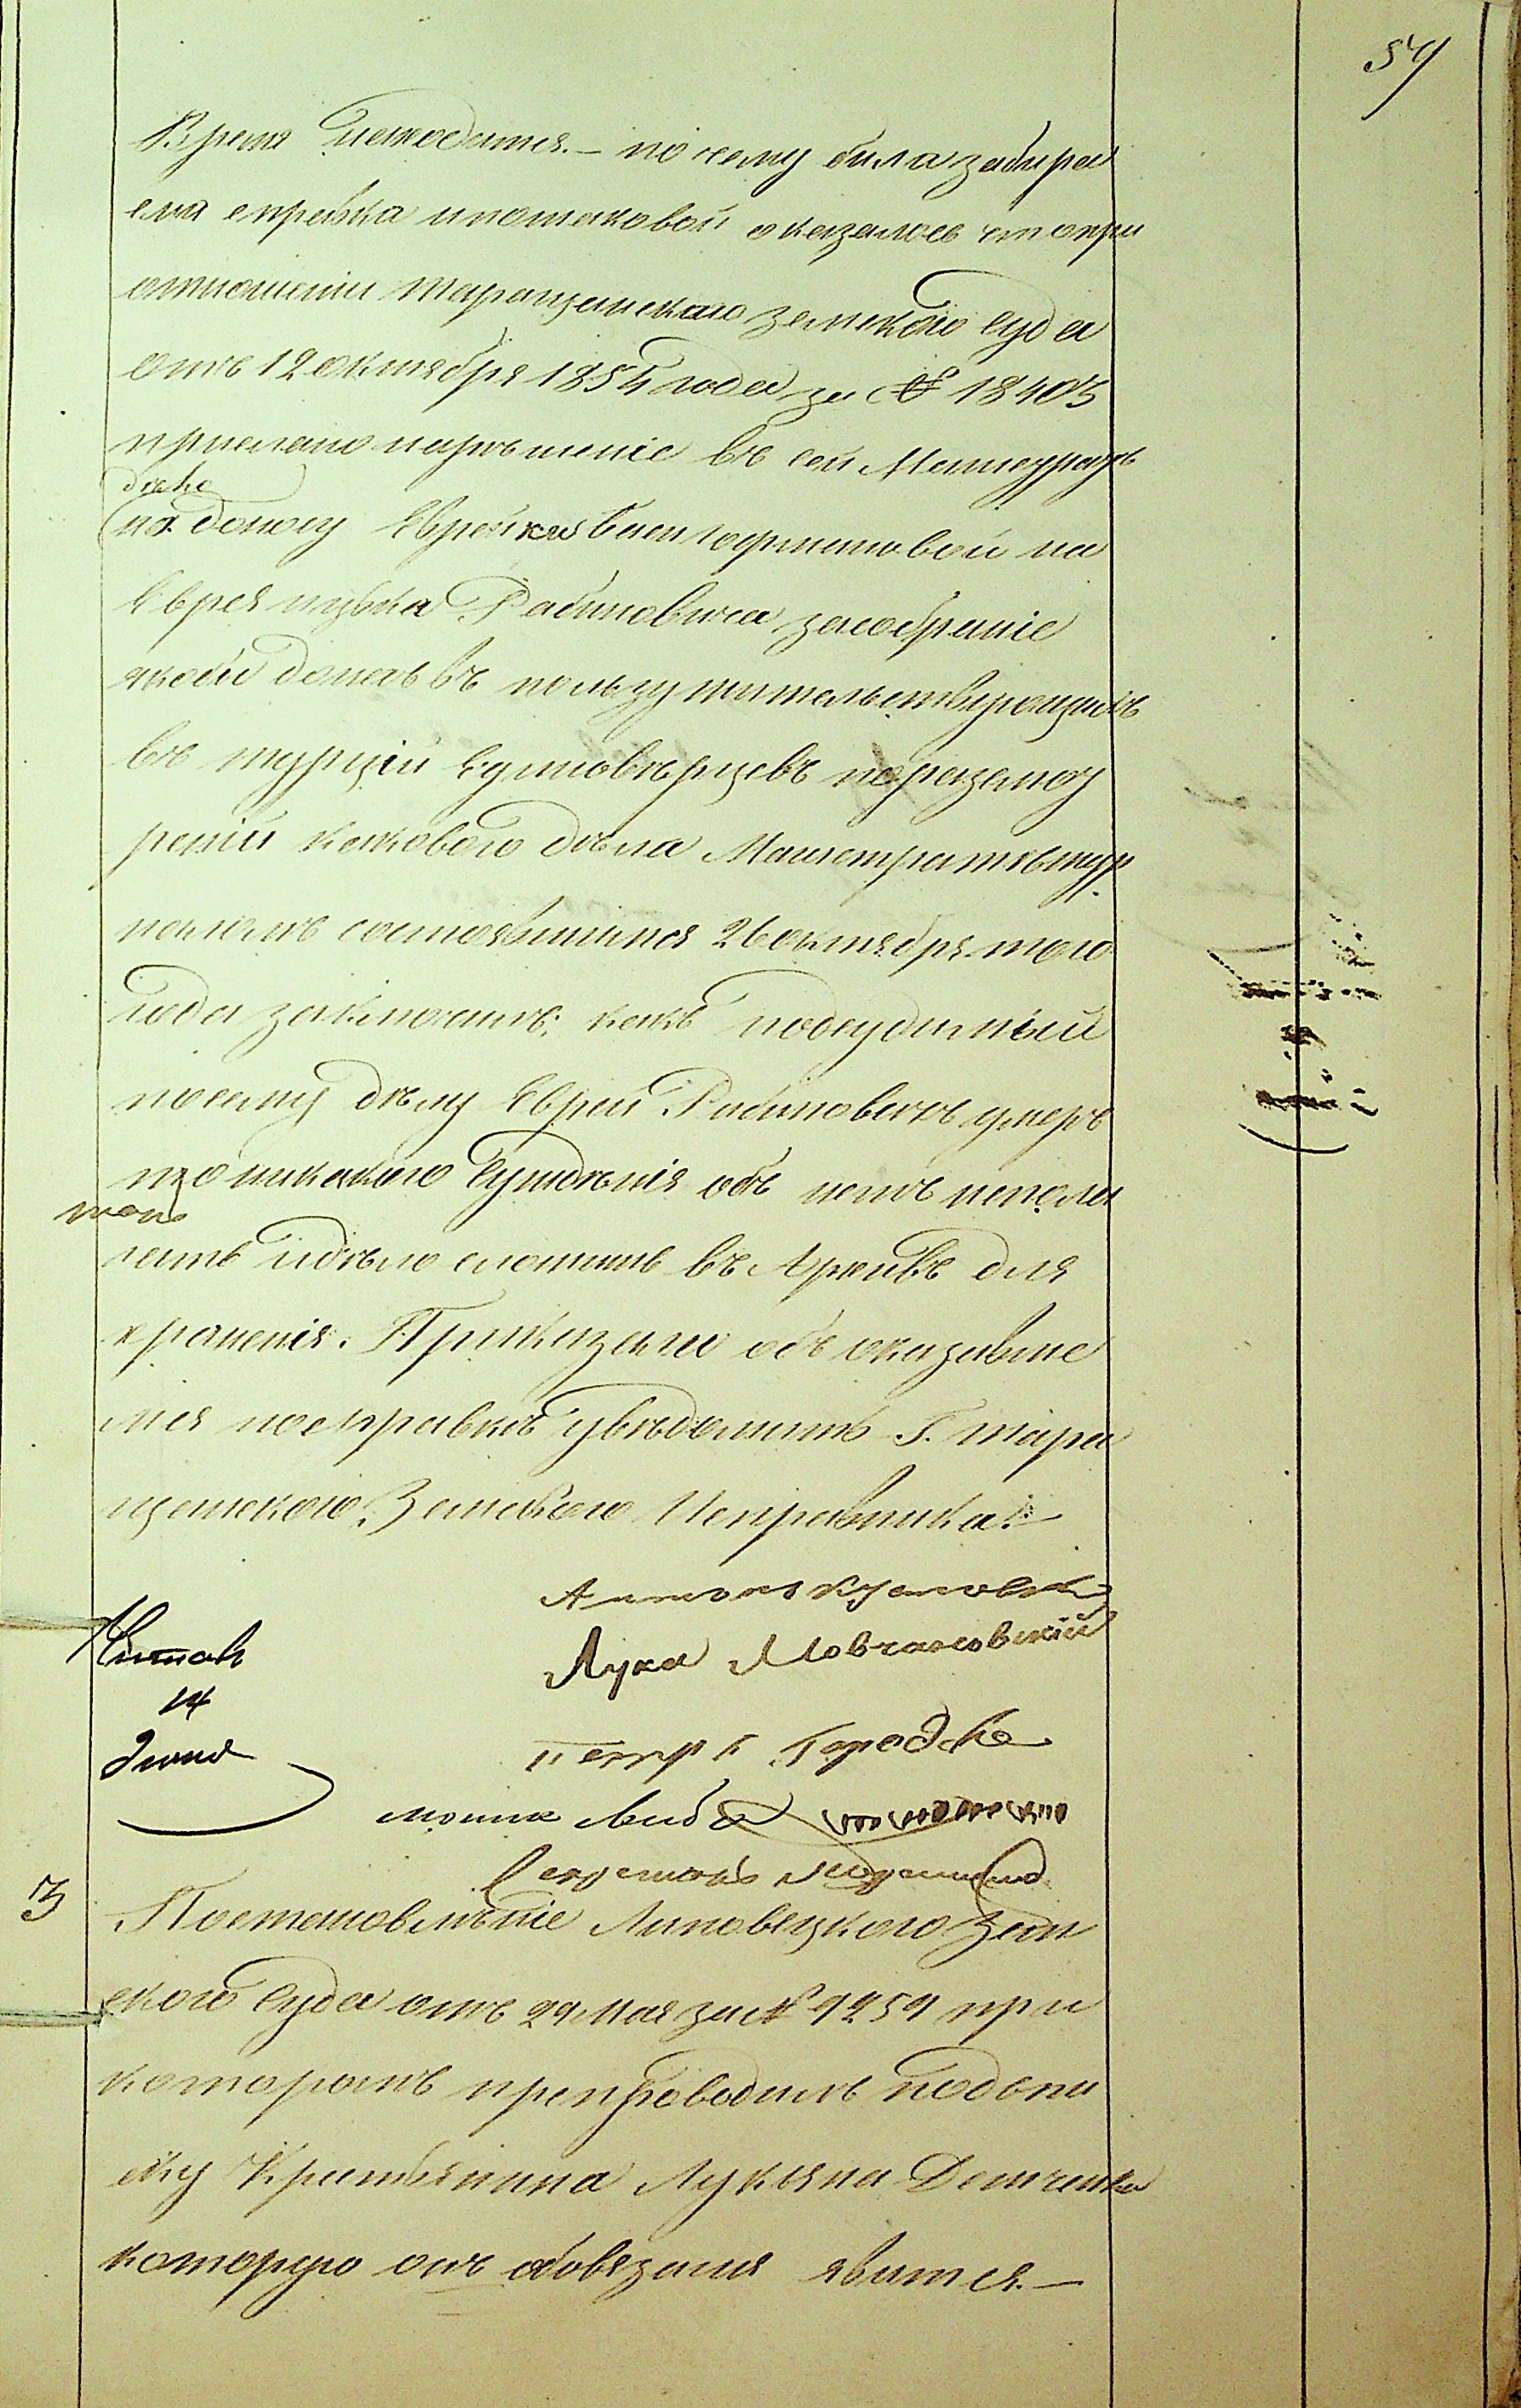 54
Время находится. — по чему была забирае
ема справка и потаковой оказалось что при
отношении таращанскаго земскаго суда
отъ 12 октября 1854 года за № 18403
прислано нарѣшеніе въ сей Магистратъ
дѣло
по доносу Еврейки Баси Гофмановой на
Еврея Ицька Рабиновича засобраніе
якобы денегъ въ пользу жительствующихъ
въ турціи Единовѣрцевъ по разсмот
реніи каковаго дѣла Магистратъ жур
наломъ состоявшимся 26 октября того
года заключилъ: какъ подсудимый
по сему дѣлу Еврей Рабиновичъ умеръ
то никакого сужденія объ немъ непола
гать и дѣло сложить въ Архивъ для
храненія. Приказали объ оказавше
мся по справкѣ увѣдомить Г. тара
щанского Земского Исправника. —
Лука Мовчановскій
Читалъ
14
Іюня
Петръ Городско
мошко Лейба
3
Постановленіе Липовецкого Зем
ского Суда отъ 29 Мая за № 9259 при
которомъ препроводилъ подпи
ску Крестьянина Лукьяна Демченка
которую онъ обовязался явится. —